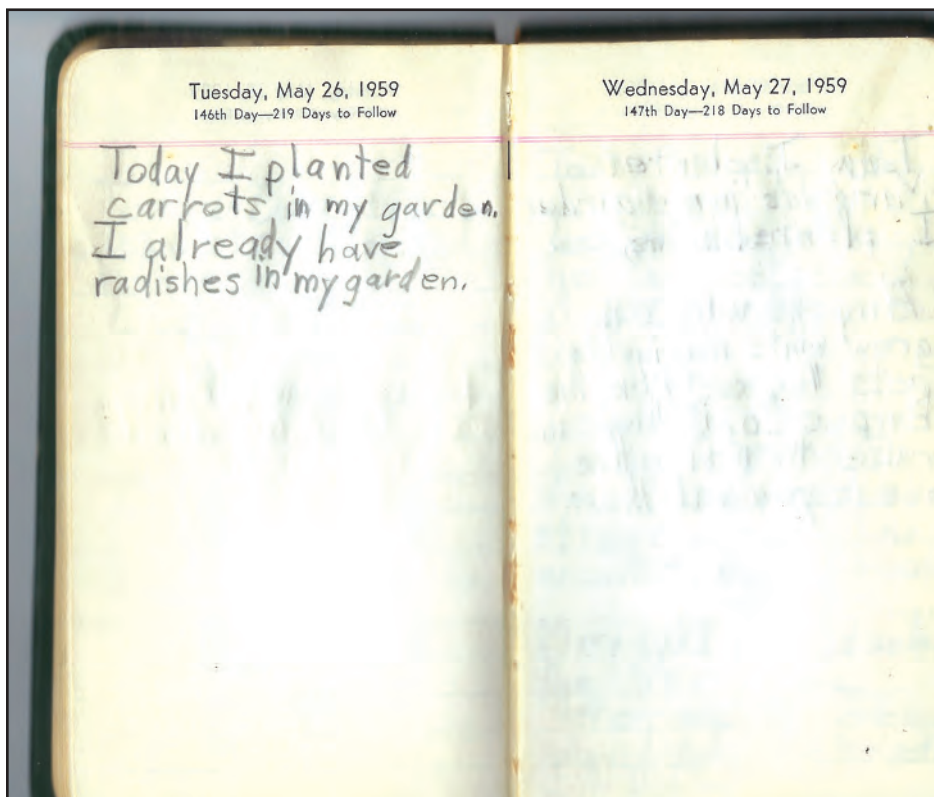 Tuesday, May 26, 1959
146th Day—219 Days to Follow
Today I planted
carrots in my garden.
I already have
radishes in my garden.
Wednesday, May 27, 1959
147th Day—218 Days to Follow